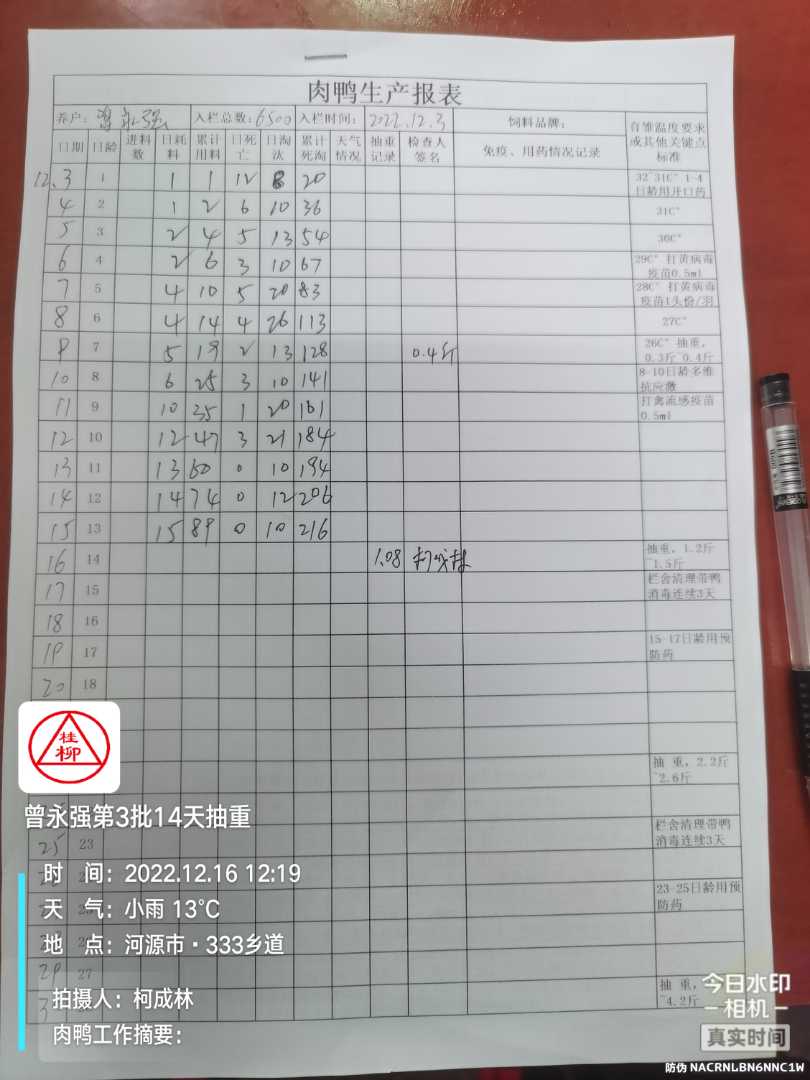 肉鸭生产报表
养户: 曾永强 入栏总数: 6500 入栏时间: 2022.12.3 饲料品牌: 育雏温度要求或其他关键点标准
日期 日龄 进料数 日耗料 累计用料 日死亡 日淘汰 累计死淘 天气情况 抽重记录 检查人签名 免疫、用药情况记录
12.3 1 1 1 12 8 20 32~31C° 1-4日龄用开口药
4 2 1 2 6 10 36 31C°
5 3 2 4 5 13 54 30C°
6 4 2 6 3 10 67 29C° 打黄病毒疫苗0.5ml
7 5 4 10 5 20 83 28C° 打黄病毒疫苗1头份/羽
8 6 4 14 4 26 113 27C°
7 5 19 2 13 128 0.4斤 26C° 抽重,0.3斤~0.4斤
10 8 6 25 3 10 141 8-10日龄多维抗应激
11 9 10 35 1 20 161 打禽流感疫苗0.5ml
12 10 12 47 3 21 184
13 11 13 60 0 10 194
14 12 14 74 0 12 206
15 13 15 89 0 10 216
16 14 1.08 抽重,1.2斤~1.5斤
17 15 栏舍清理带鸭消毒连续3天
18 16
19 17 15-17日龄用预防药
20 18
抽 重,2.2斤~2.6斤
25 23 栏舍清理带鸭消毒连续3天
23-25日龄用预防药
27
抽 重,~4.2斤
桂柳
曾永强第3批14天抽重
时 间: 2022.12.16 12:19
天 气: 小雨 13℃
地 点: 河源市·333乡道
拍摄人: 柯成林
肉鸭工作摘要:
今日水印
-相机-
真实时间
防伪 NACRNLBN6NNC1W